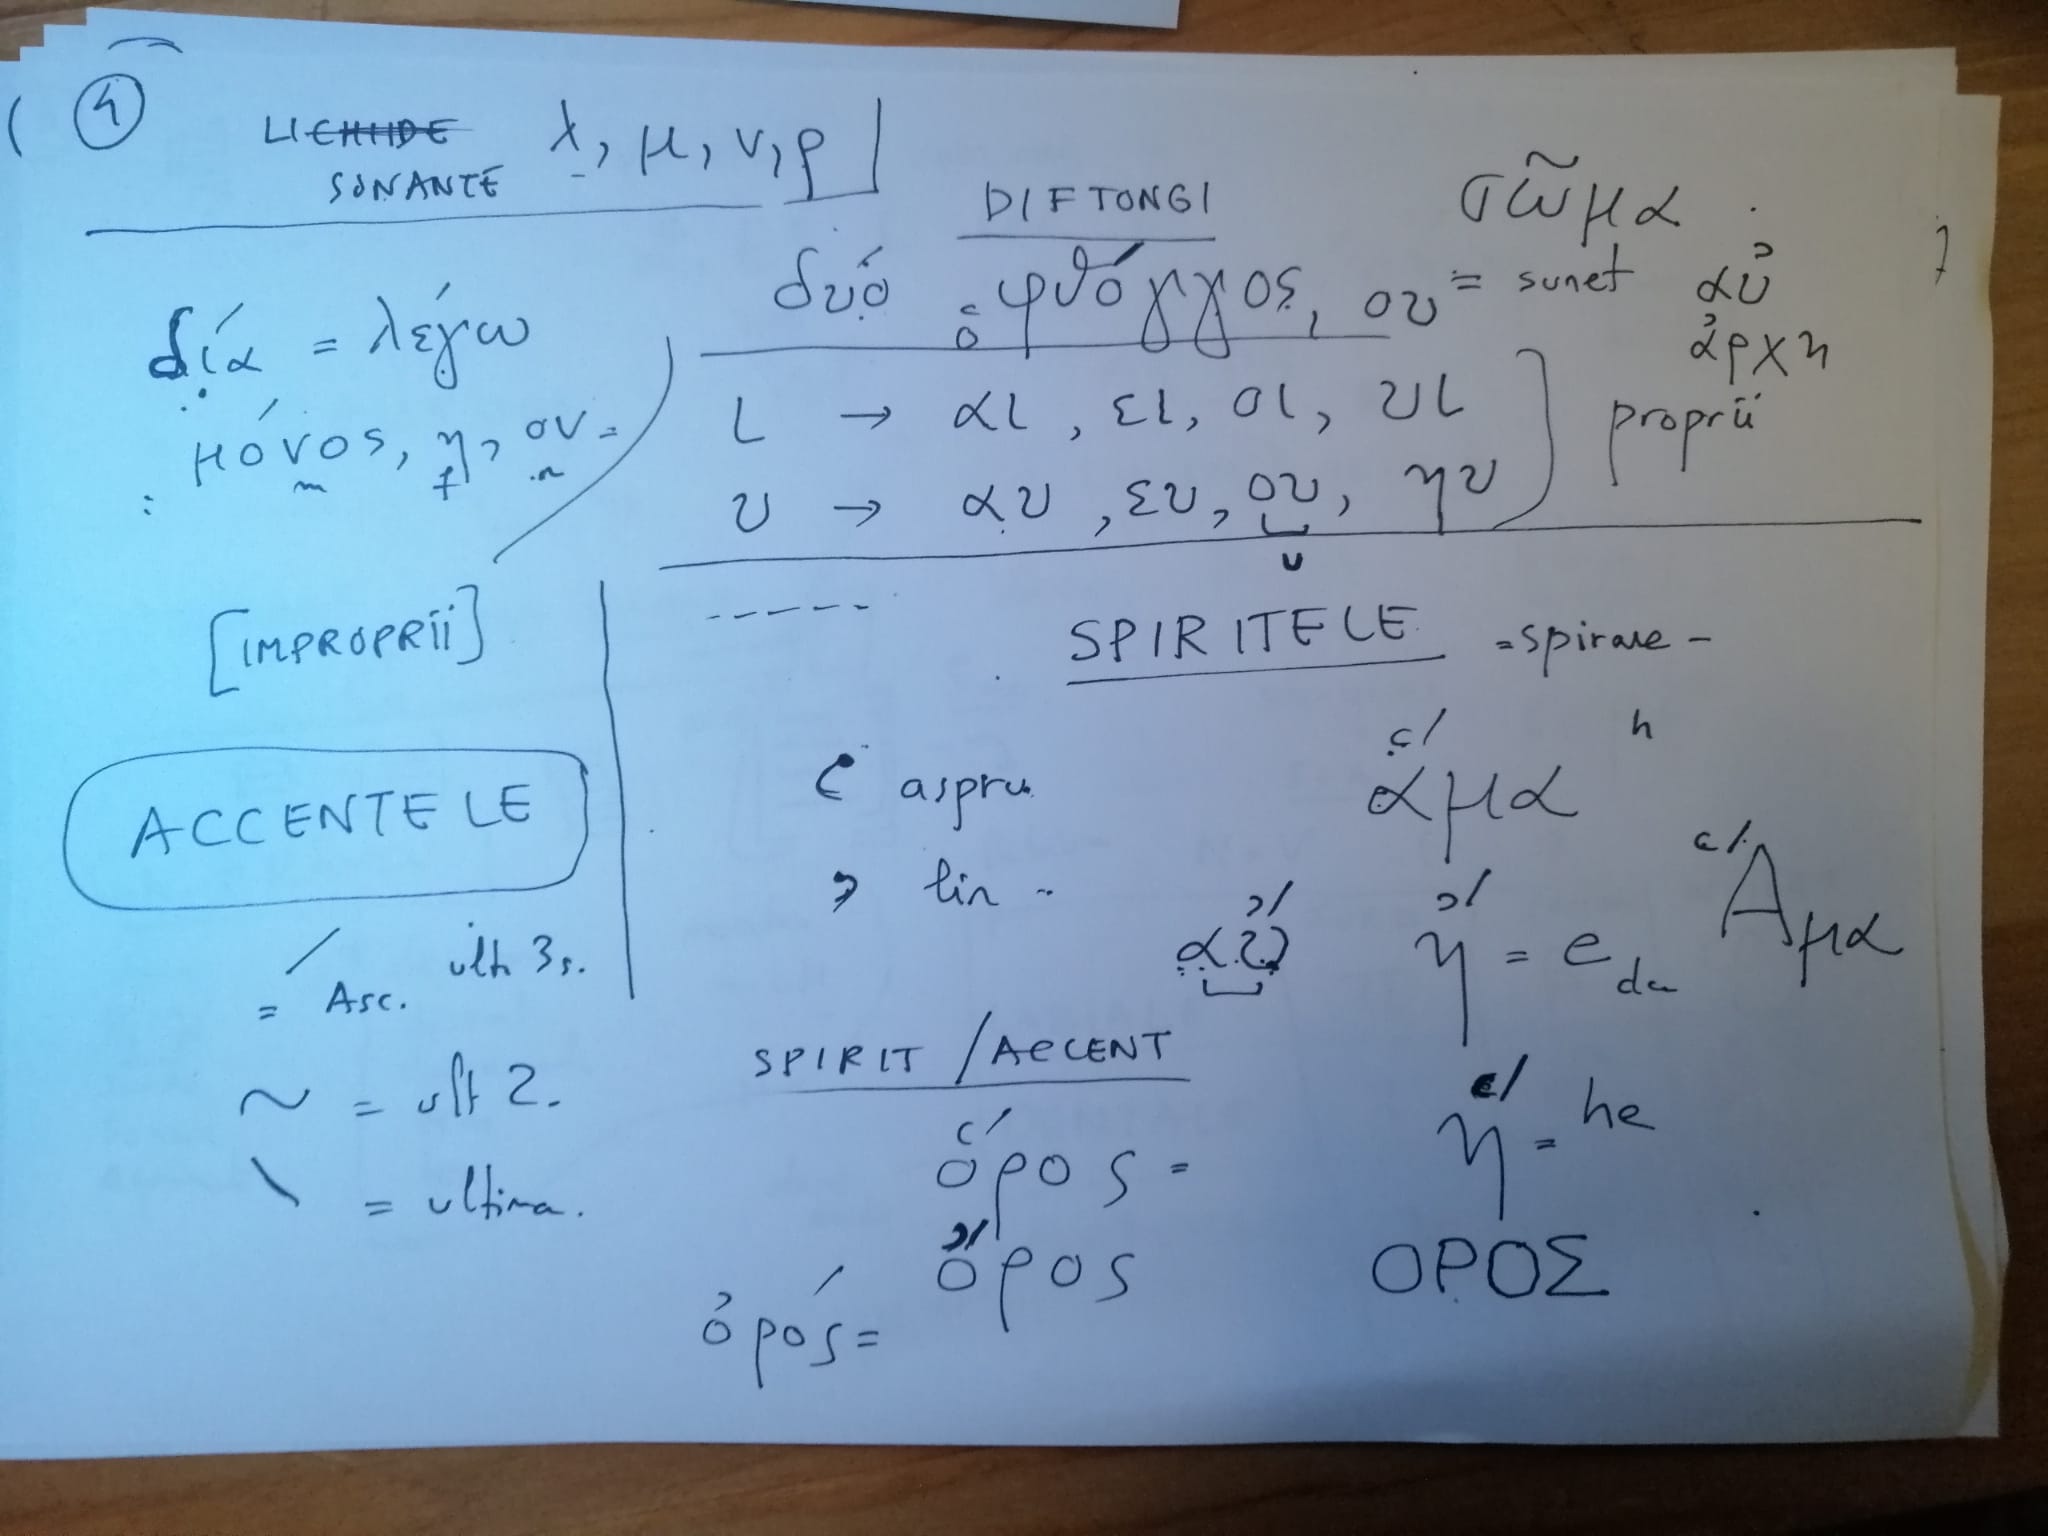 4
LICHIDE λ, μ, ν, ρ
SONANTE
DIFTONGI
σῶμα
δυό ὁ φθόγγος, ου = sunet αὐ
ἀρχη
δία = λέγω
μόνος, η, ον =
m f n
ι → αι, ει, οι, υι
υ → αυ, ευ, ου, ηυ
proprii
u
[IMPROPRII]
SPIRITELE = spirare -
ACCENTELE
῾ aspru
ἅμα h
᾿ lin
Ἅμα
αὔ ἤ = e
ἥ = he
/ = Asc. ult 3s.
~ = ult 2.
\ = ultima.
SPIRIT / ACCENT
ὅρος =
ὄρος
ὀρός =
ΟΡΟΣ